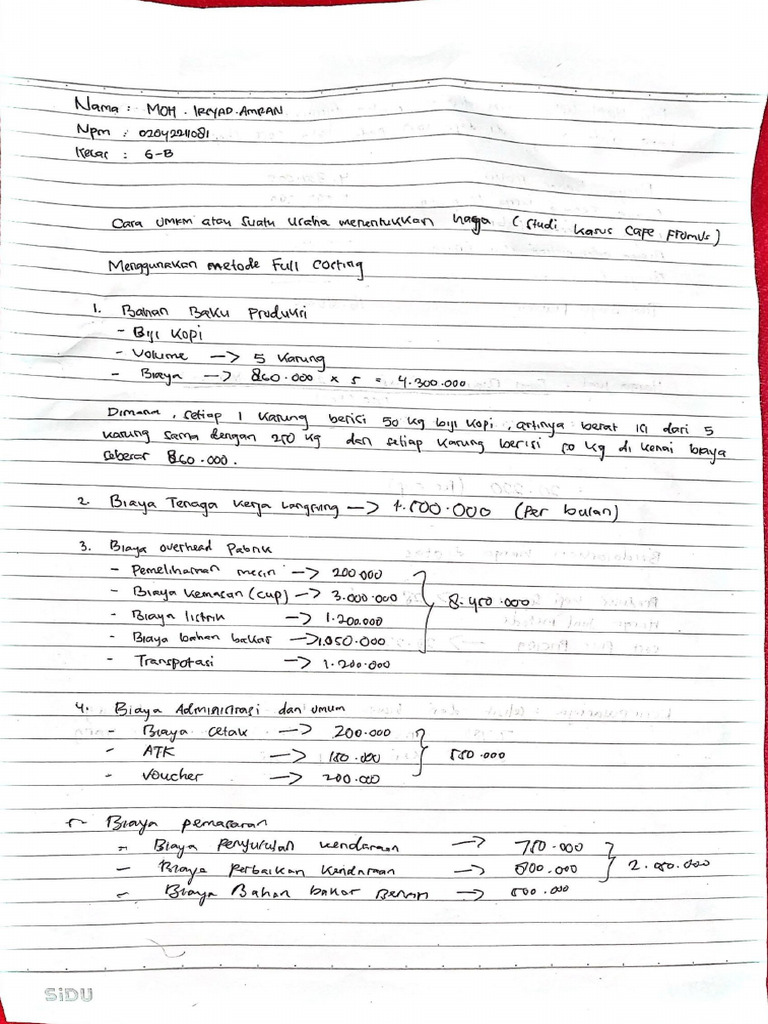 Nama : MOH . IRSYAD . AMRAN
Npm : 02042211081
Kelas : 6-B
Cara UMKM atau Suatu Usaha menentukkan harga (Studi kasus Cafe Fromus)
Menggunakan metode Full Costing
1. Bahan Baku Produksi
- Biji Kopi
- Volume -> 5 Karung
- Biaya -> 860.000 x 5 = 4.300.000
Dimana, setiap 1 karung berisi 50 kg biji kopi, artinya berat isi dari 5
karung sama dengan 250 kg dan setiap karung berisi 50 kg di kenai biaya
sebesar 860.000.
2. Biaya Tenaga kerja Langsung -> 1.500.000 (Per bulan)
3. Biaya overhead Pabrik
- Pemeliharaan mesin -> 200.000
- Biaya kemasan (cup) -> 3.000.000 8.450.000
- Biaya listrik -> 1.200.000
- Biaya bahan bakar -> 1.050.000
- Transpotasi -> 1.200.000
4. Biaya Administrasi dan umum
- Biaya cetak -> 200.000
- ATK -> 150.000 550.000
- Voucher -> 200.000
5 Biaya pemasaran
- Biaya penyusutan kendaraan -> 750.000
- Biaya perbaikan kendaraan -> 800.000 2.050.000
- Biaya Bahan bakar Bensin -> 500.000
SiDU